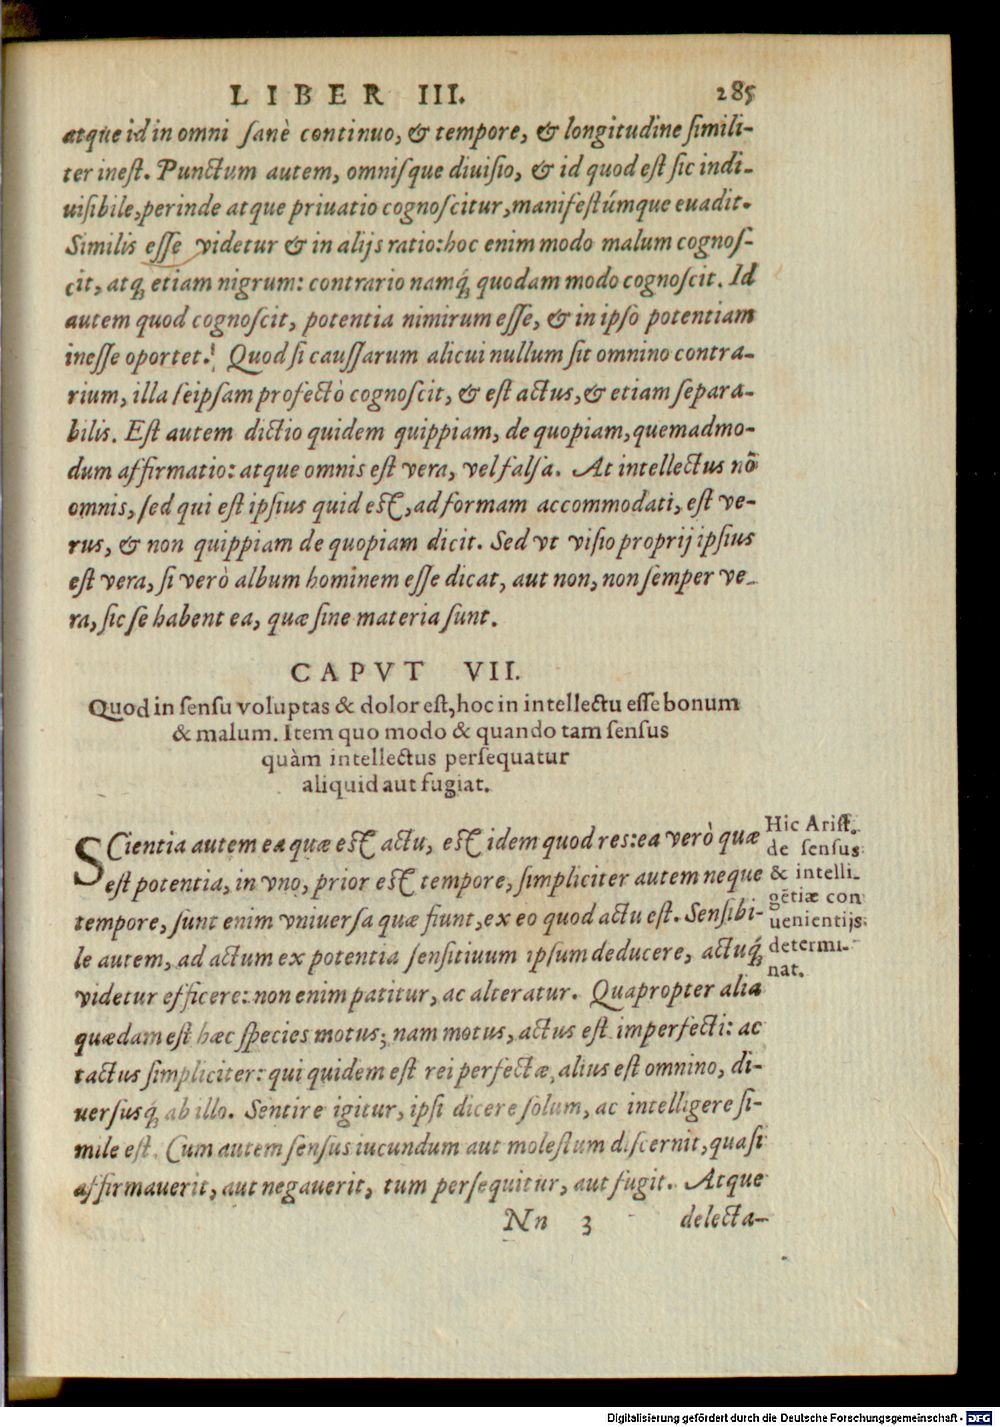 LIBER III. 285
atque id in omni sanè continuo, & tempore, & longitudine simili-
ter inest. Punctum autem, omnisque diuisio, & id quod est sic indi-
uisibile, perinde atque priuatio cognoscitur, manifestúmque euadit.
Similis esse videtur & in alijs ratio: hoc enim modo malum cognos-
cit, atq́; etiam nigrum: contrario namq́; quodam modo cognoscit. Id
autem quod cognoscit, potentia nimirum esse, & in ipso potentiam
inesse oportet. Quod si caussarum alicui nullum sit omnino contra-
rium, illa seipsam profectò cognoscit, & est actus, & etiam separa-
bilis. Est autem dictio quidem quippiam, de quopiam, quemadmo-
dum affirmatio: atque omnis est vera, vel falsa. At intellectus nõ
omnis, sed qui est ipsius quid est, ad formam accommodati, est ve-
rus, & non quippiam de quopiam dicit. Sed vt visio proprij ipsius
est vera, si verò album hominem esse dicat, aut non, non semper ve-
ra, sic se habent ea, quæ sine materia sunt.
CAPVT VII.
Quod in sensu voluptas & dolor est, hoc in intellectu esse bonum
& malum. Item quo modo & quando tam sensus
quàm intellectus persequatur
aliquid aut fugiat.
SCientia autem ea quæ est actu, est idem quod res: ea verò quæ
est potentia, in vno, prior est tempore, simpliciter autem neque
tempore, sunt enim vniuersa quæ fiunt, ex eo quod actu est. Sensibi-
le autem, ad actum ex potentia sensitiuum ipsum deducere, actuq́;
videtur efficere: non enim patitur, ac alteratur. Quapropter alia
quædam est hæc species motus; nam motus, actus est imperfecti: ac
tactus simpliciter: qui quidem est rei perfectæ, alius est omnino, di-
uersusq́; ab illo. Sentire igitur, ipsi dicere solum, ac intelligere si-
mile est. Cum autem sensus iucundum aut molestum discernit, quasi
affirmauerit, aut negauerit, tum persequitur, aut fugit. Atque
Nn 3 delecta-
Hic Arist.
de sensus
& intelli-
gẽtiæ con
uenientijs
determi-
nat.
Digitalisierung gefördert durch die Deutsche Forschungsgemeinschaft - DFG